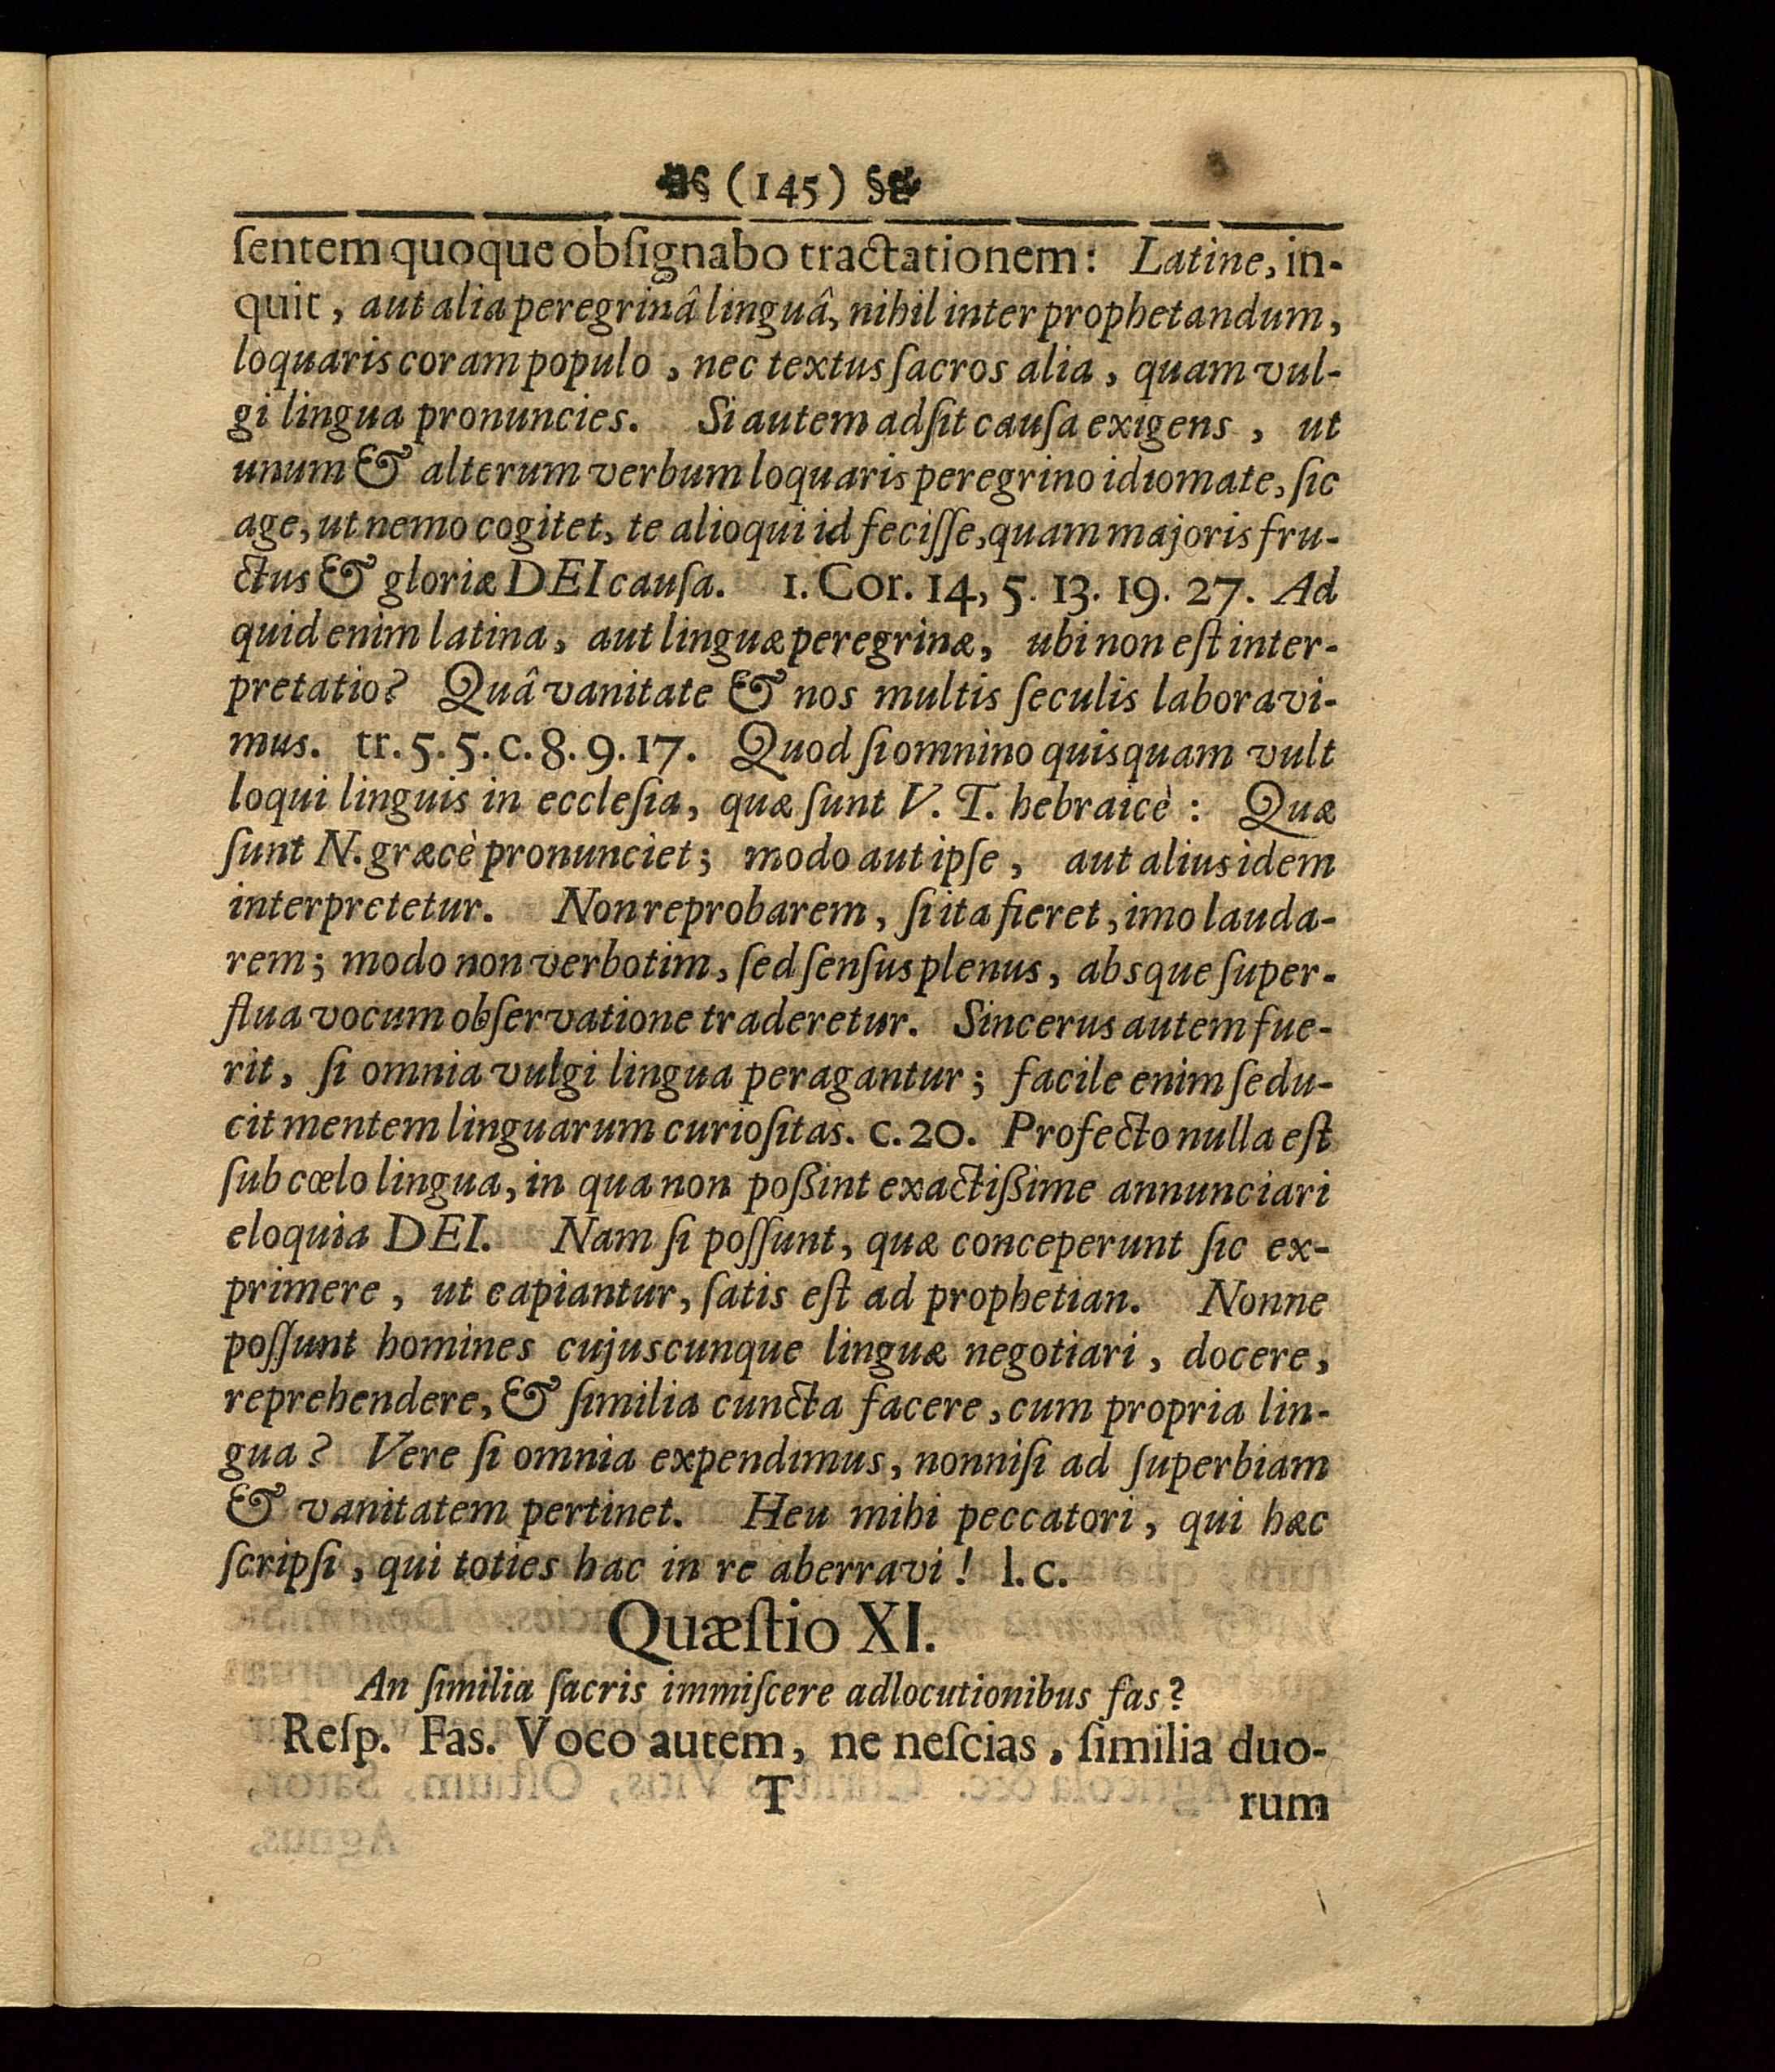 (145)
ſentem quoque obſignabo tractationem: Latine, in-
quit, aut alia peregrinâ linguâ, nihil inter prophetandum,
loquaris coram populo, nec textus ſacros alia, quam vul-
gi lingua pronuncies. Si autem adſit cauſa exigens, ut
unum & alterum verbum loquaris peregrino idiomate, ſic
age, ut nemo cogitet, te alioqui id feciſſe, quam majoris fru-
ctus & gloriæ DEI cauſa. 1. Cor. 14, 5. 13. 19. 27. Ad
quid enim latina, aut linguæ peregrinæ, ubi non eſt inter-
pretatio? Quâ vanitate & nos multis ſeculis laboravi-
mus. tr. 5. 5. c. 8. 9. 17. Quod ſi omnino quisquam vult
loqui linguis in eccleſia, quæ ſunt V. T. hebraicè: Quæ
ſunt N. græcè pronunciet; modo aut ipſe, aut alius idem
interpretetur. Non reprobarem, ſi ita fieret, imo lauda-
rem; modo non verbotim, ſed ſenſus plenus, absque ſuper-
flua vocum obſervatione traderetur. Sincerus autem fue-
rit, ſi omnia vulgi lingua peragantur; facile enim ſedu-
cit mentem linguarum curioſitas. c. 20. Profecto nulla eſt
ſub cœlo lingua, in qua non poßint exactißime annunciari
eloquia DEI. Nam ſi poſſunt, quæ conceperunt ſic ex-
primere, ut eapiantur, ſatis eſt ad prophetian. Nonne
poſſunt homines cujuscunque linguæ negotiari, docere,
reprehendere, & ſimilia cuncta facere, cum propria lin-
gua? Vere ſi omnia expendimus, nonniſi ad ſuperbiam
& vanitatem pertinet. Heu mihi peccatori, qui hæc
ſcripſi, qui toties hac in re aberravi! l. c.
Quæſtio XI.
An ſimilia ſacris immiſcere adlocutionibus fas?
Reſp. Fas. Voco autem, ne neſcias, ſimilia duo-
T rum